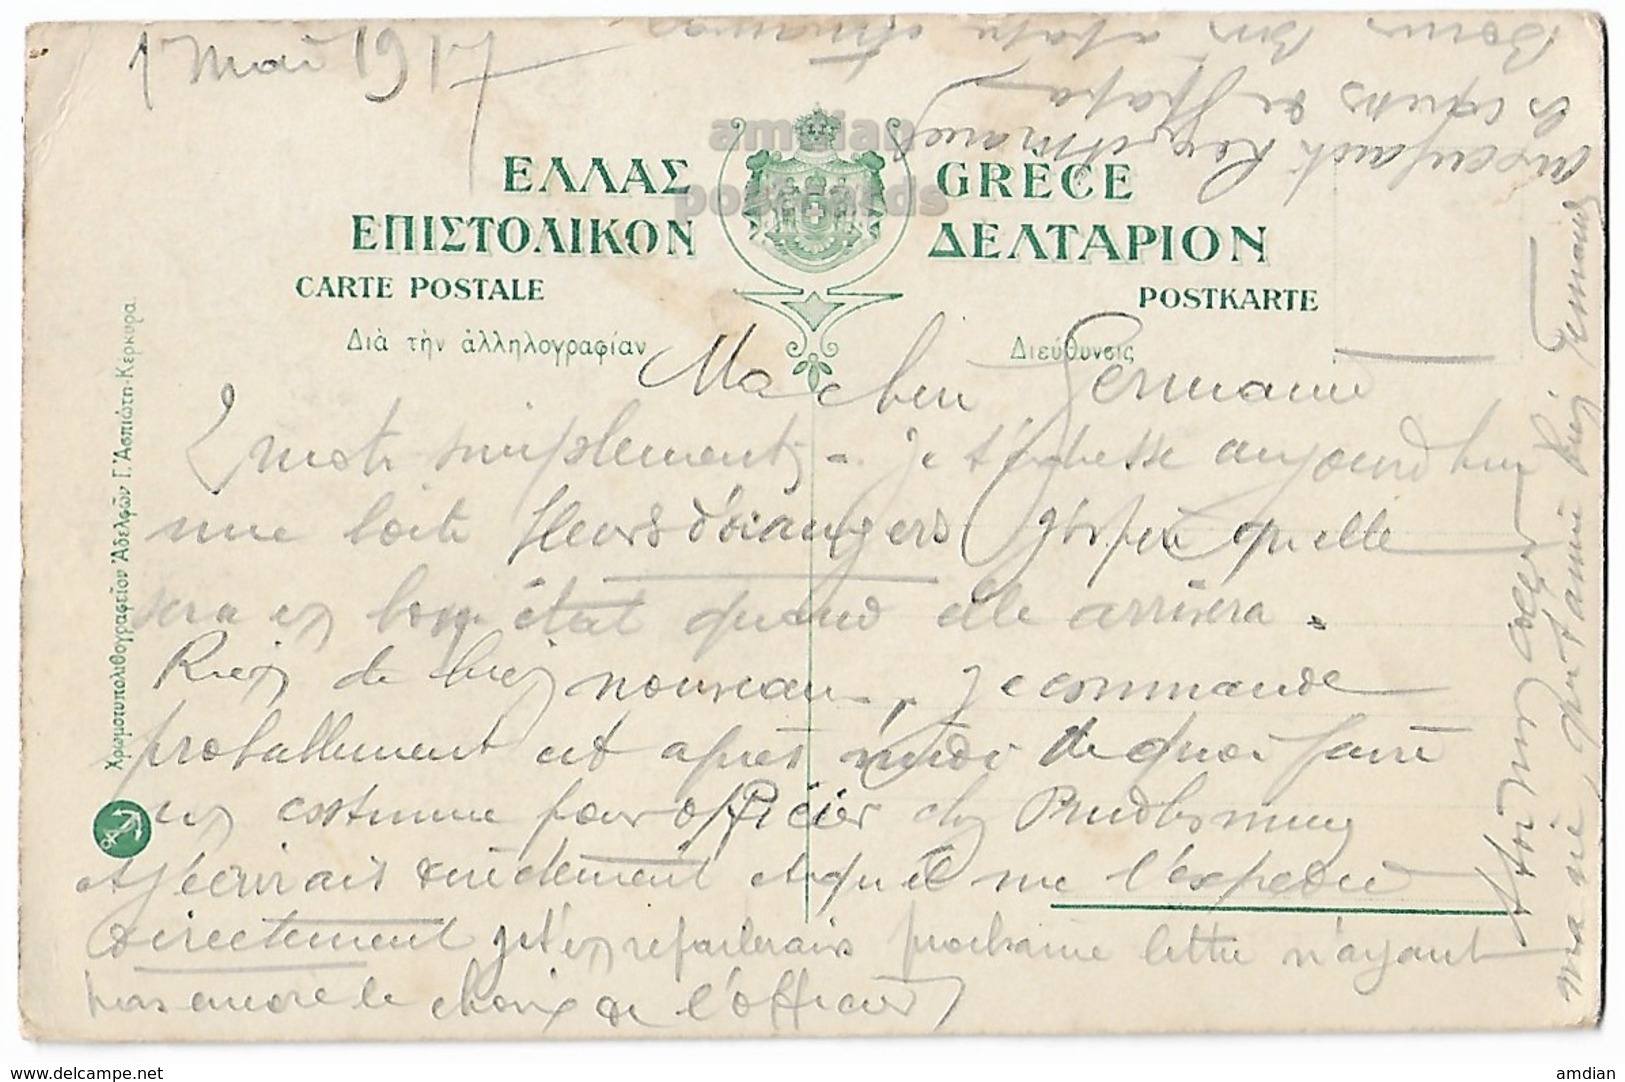 1 Mai 1917
amdian
postcards
ΕΛΛΑΣ GRÈCE
ΕΠΙΣΤΟΛΙΚΟΝ ΔΕΛΤΑΡΙΟΝ
CARTE POSTALE POSTKARTE
Διὰ τὴν ἀλληλογραφίαν Διεύθυνσις
Ma chère Germaine
2 mots simplement. Je t'adresse aujourd'hui
une boite fleurs d'orangers j'espère qu'elle
sera en bon état quand elle arrivera.
Rien de bien nouveau. Je commande
probablement cet après midi de quoi faire
un costume pour officier chez
et j'écrirais directement et qu'il me l'expédie
directement je t'en reparlerais prochaine lettre n'ayant
pas encore le choix de l'officier
ma vie, que t'aime bien Germaine
Χρωμοτυπολιθογραφεῖον Ἀδελφῶν Γ. Ἀσπιώτη-Κέρκυρα.
www.delcampe.net
amdian